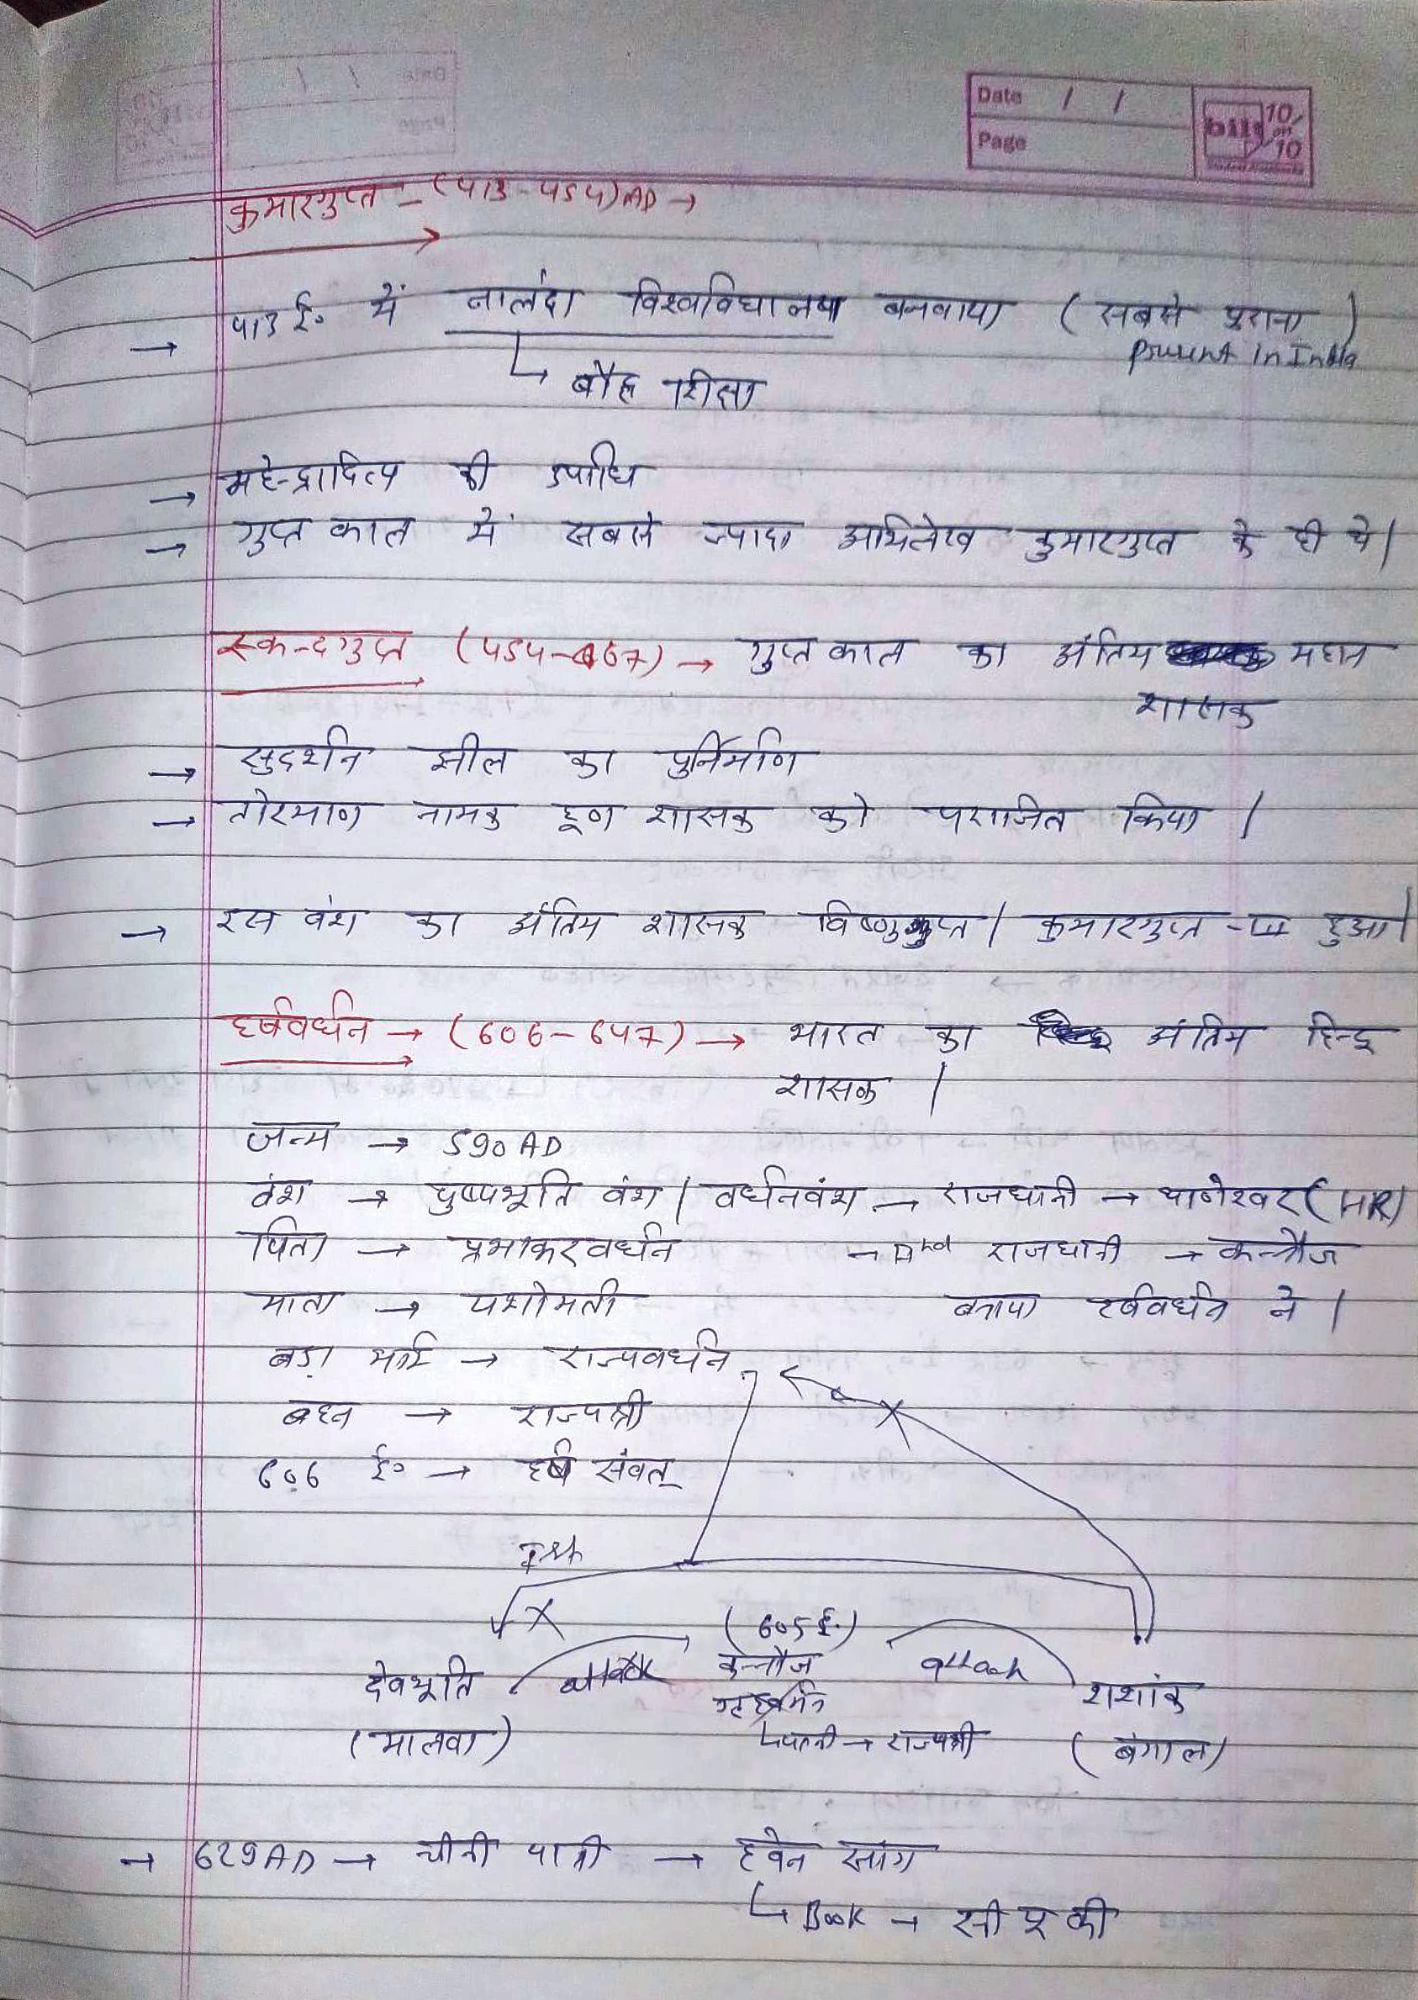 Date / /
Page
bilt 10 on 10
कुमारगुप्त - (413-454)AD →
→ 413 ई० में नालंदा विश्वविद्यालय बनवाया ( सबसे पुराना )
present in India
↳ बौद्ध शिक्षा
→ महेन्द्रादित्य की उपाधि
→ गुप्त काल में सबसे ज्यादा अभिलेख कुमारगुप्त के ही थे|
स्कन्दगुप्त (454-467) → गुप्त काल का अंतिम महान
शासक
→ सुदर्शन झील का पुर्निर्माण
→ तोरमाण नामक हूण शासक को पराजित किया |
→ इस वंश का अंतिम शासक विष्णुगुप्त / कुमारगुप्त -III हुआ|
हर्षवर्धन → (606-647) → भारत का अंतिम हिन्दू
शासक |
जन्म → 590 AD
वंश → पुष्पभूति वंश / वर्धनवंश → राजधानी → थाणेश्वर (HR)
पिता → प्रभाकरवर्धन → IInd राजधानी → कन्नौज
माता → यशोमती बनाया हर्षवर्धन ने |
बड़ा भाई → राज्यवर्धन
बहन → राज्यश्री
606 ई० → हर्ष संवत्
Ist
(605 ई.)
देवभूति attack कन्नौज attack शशांक
गृहवर्मन
(मालवा) ↳ पत्नी → राज्यश्री (बंगाल)
→ 629 AD → चीनी यात्री → हवेन सांग
↳ Book → सी यू की